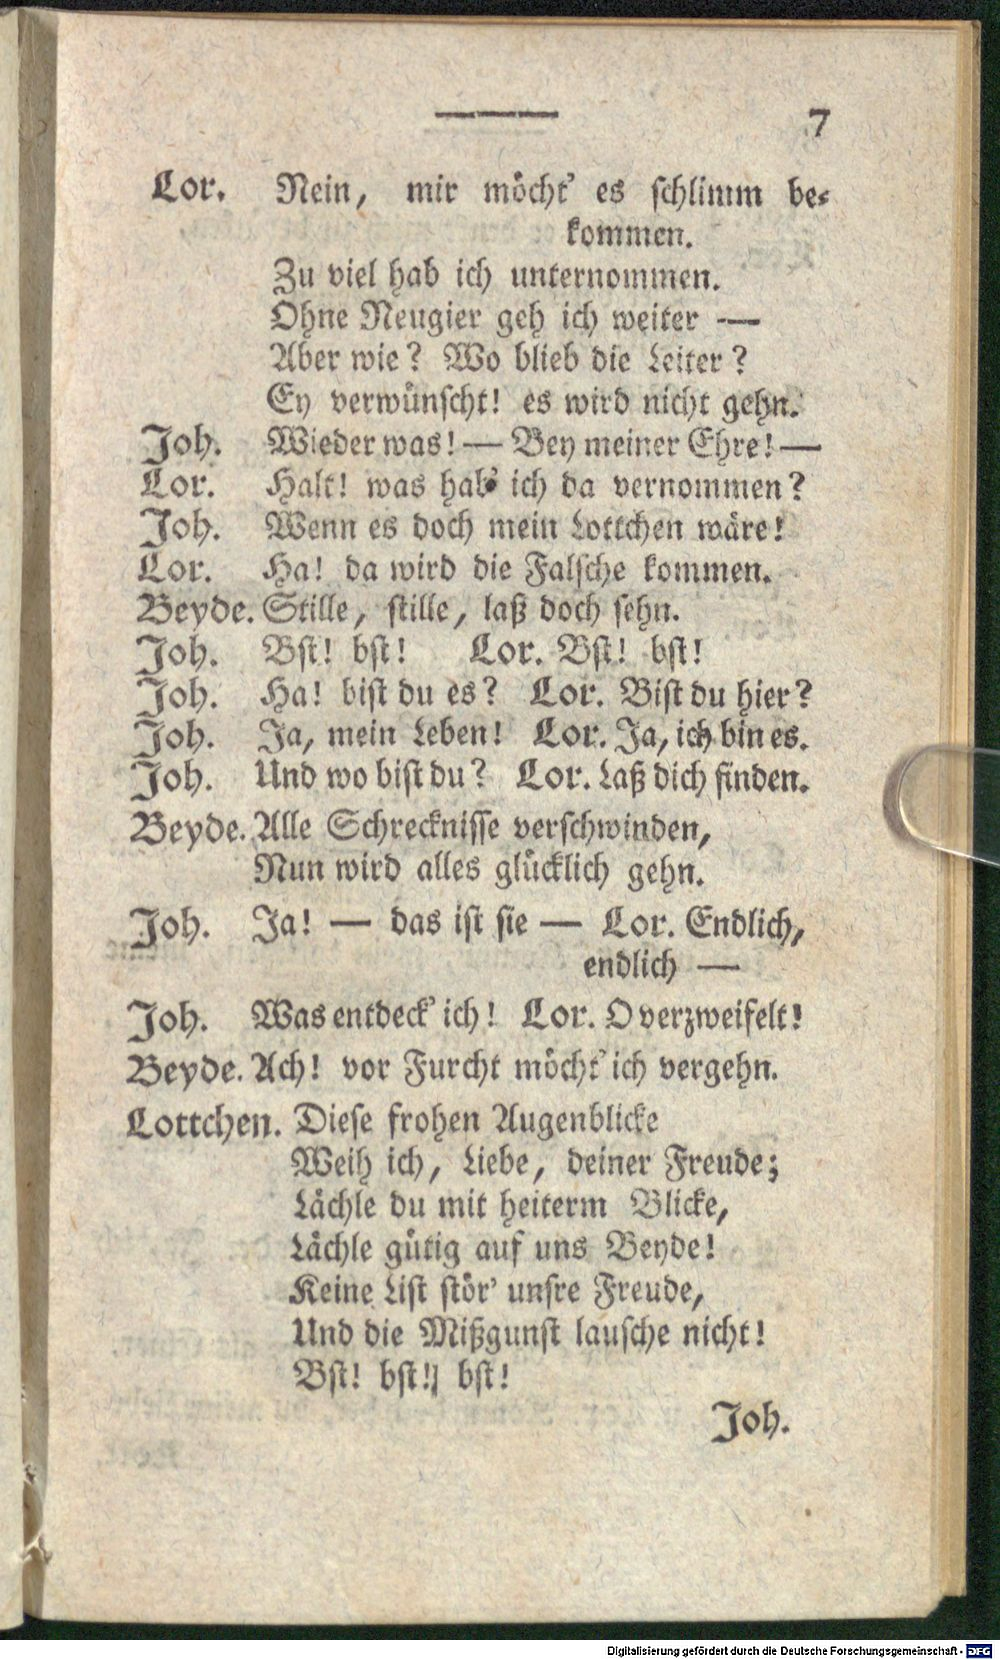 7
Lor. Nein, mir möcht' es schlimm be-
kommen.
Zu viel hab ich unternommen.
Ohne Neugier geh ich weiter —
Aber wie? Wo blieb die Leiter?
Ey verwünscht! es wird nicht gehn.
Joh. Wieder was! — Bey meiner Ehre! —
Lor. Halt! was hab' ich da vernommen?
Joh. Wenn es doch mein Lottchen wäre!
Lor. Ha! da wird die Falsche kommen.
Beyde. Stille, stille, laß doch sehn.
Joh. Bst! bst! Lor. Bst! bst!
Joh. Ha! bist du es? Lor. Bist du hier?
Joh. Ja, mein Leben! Lor. Ja, ich bin es.
Joh. Und wo bist du? Lor. Laß dich finden.
Beyde. Alle Schrecknisse verschwinden,
Nun wird alles glücklich gehn.
Joh. Ja! — das ist sie — Lor. Endlich,
endlich —
Joh. Was entdeck' ich! Lor. O verzweifelt!
Beyde. Ach! vor Furcht möcht' ich vergehn.
Lottchen. Diese frohen Augenblicke
Weih ich, Liebe, deiner Freude;
Lächle du mit heiterm Blicke,
Lächle gütig auf uns Beyde!
Keine List stör' unsre Freude,
Und die Mißgunst lausche nicht!
Bst! bst! bst!
Joh.
Digitalisierung gefördert durch die Deutsche Forschungsgemeinschaft - DFG